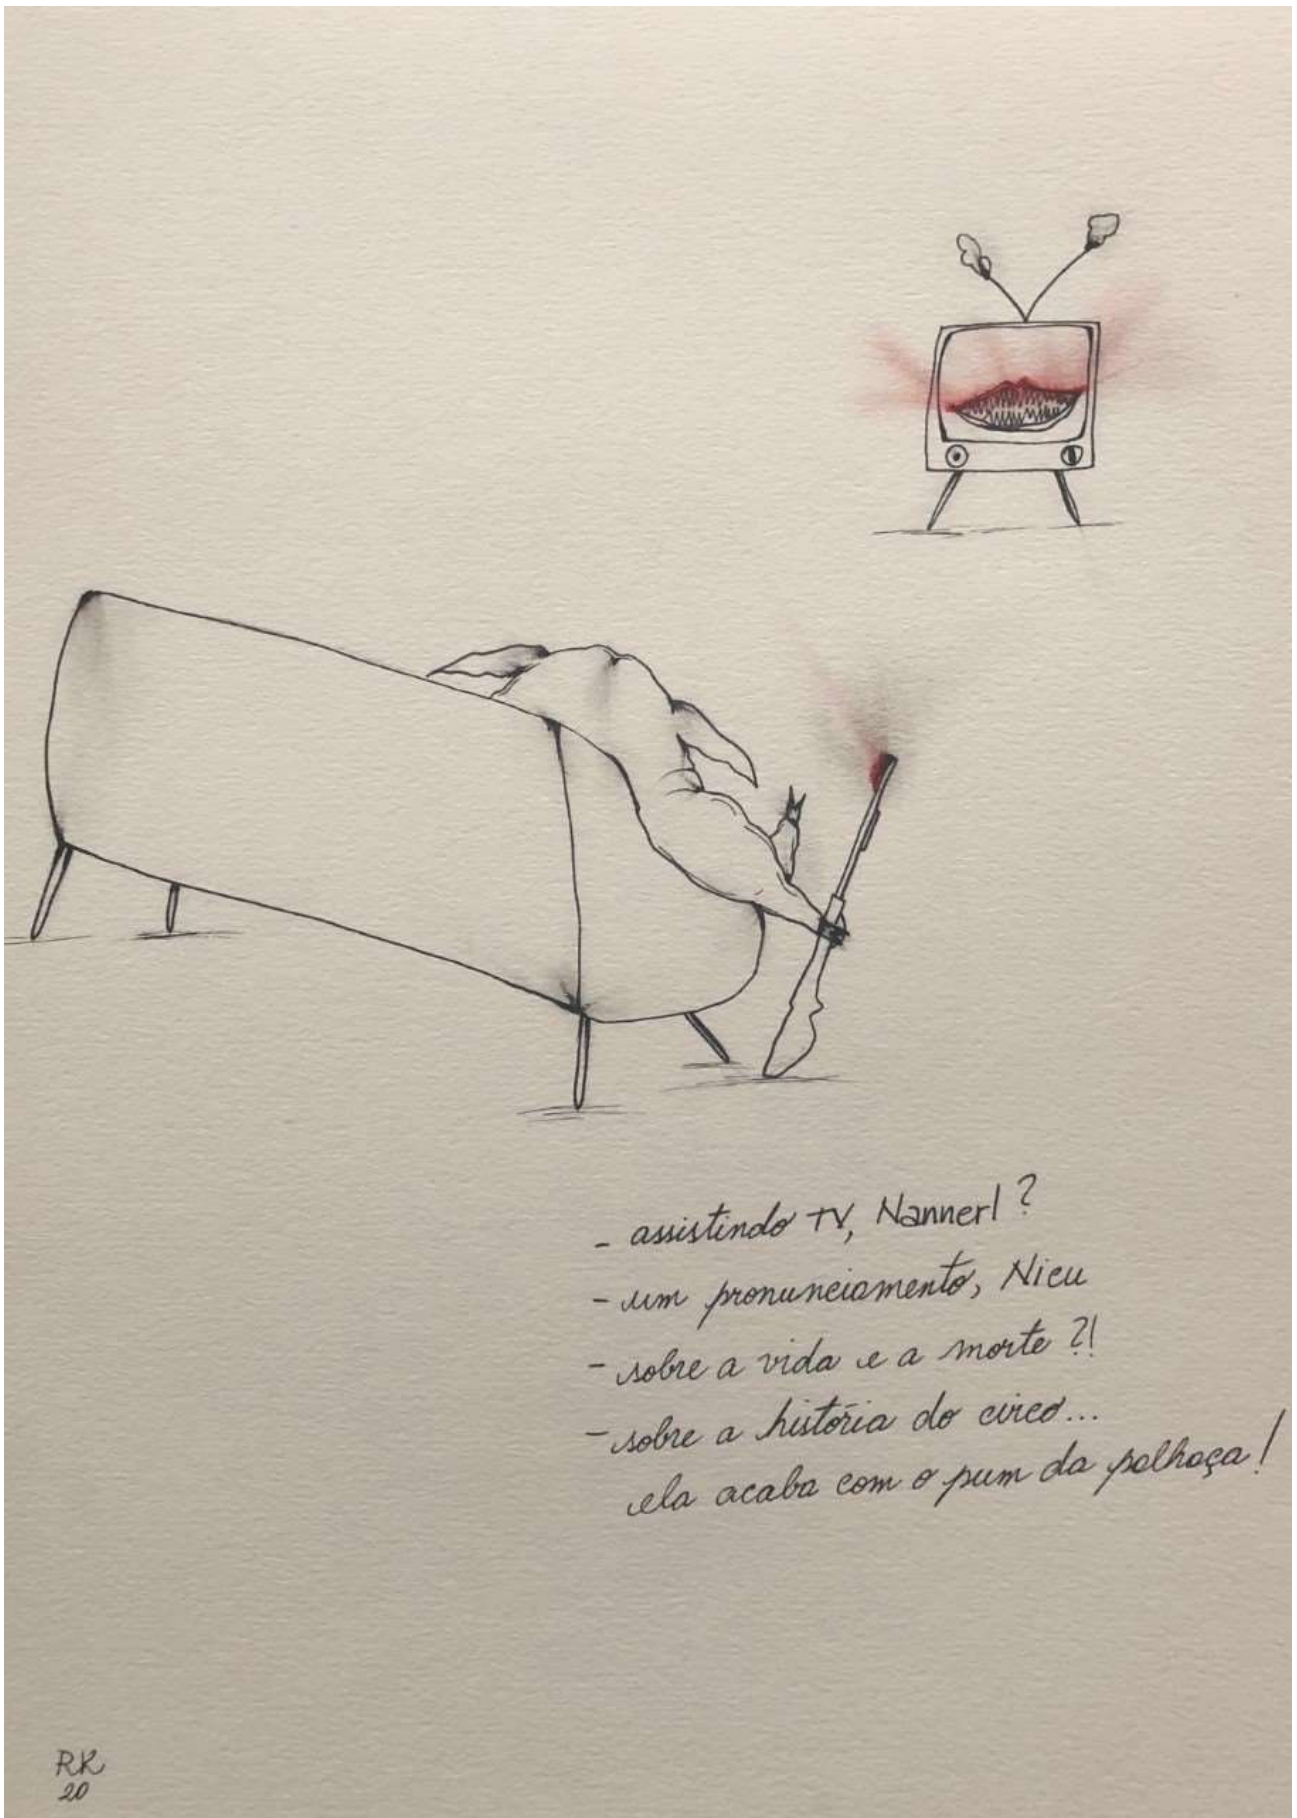 - assistindo TV, Nannerl?
- um pronunciamento, Nieu
- sobre a vida e a morte?!
- sobre a história do circo...
ela acaba com o pum da palhaça!
RK
20